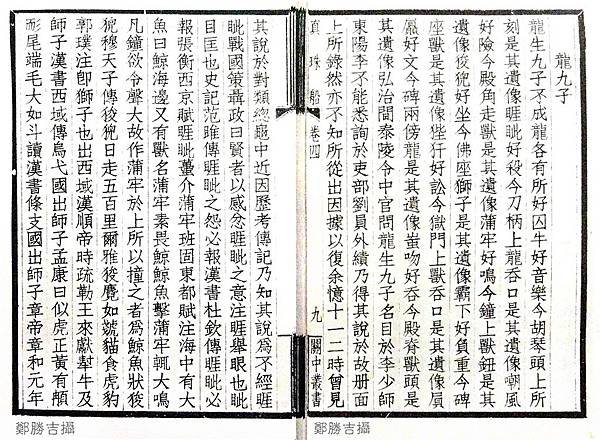 龍九子
龍生九子不成龍各有所好囚牛好音樂今胡琴頭上所
刻是其遺像睚眦好殺今刀柄上龍吞口是其遺像嘲風
好險今殿角走獸是其遺像蒲牢好鳴今鐘上獸鈕是其
遺像狻猊好坐今佛座獅子是其遺像霸下好負重今碑
座獸是其遺像狴犴好訟今獄門上獸吞口是其遺像
屭好文今碑兩傍龍是其遺像蚩吻好吞今殿脊獸頭是
其遺像弘治間泰陵令中官問龍生九子名目於李少師
東陽李不能悉詢於吏部劉員外績乃得其說於故册面
上所錄然亦不知所從出因據以復余憶十一二時曾見
真珠船 卷四 九 關中叢書
其說於對類總龜中近因歷考傳記乃知其說為不經睚
眦戰國策聶政曰賢者以感忿睚眦之意注睚舉眼也眦
目匡也史記范雎傳睚眦之怨必報漢書杜欽傳報睚眦
報張衡西京賦睚眦蠆介蒲牢班固東都賦注海中有大
魚曰鯨海邊又有獸名蒲牢素畏鯨鯨魚擊蒲牢輒大鳴
凡鐘欲令聲大故作蒲牢於上所以撞之者為鯨魚狀狻
猊穆天子傳狻猊日走五百里爾雅狻麑如虦貓食虎豹
郭璞注卽獅子也出西域漢順帝時疏勒王來獻犎牛及
師子漢書西域傳烏弋國出師子孟康曰似虎正黃有髯
耏尾端毛大如斗讀漢書條支國出師子章帝章和元年
鄭勝吉攝
鄭勝吉攝